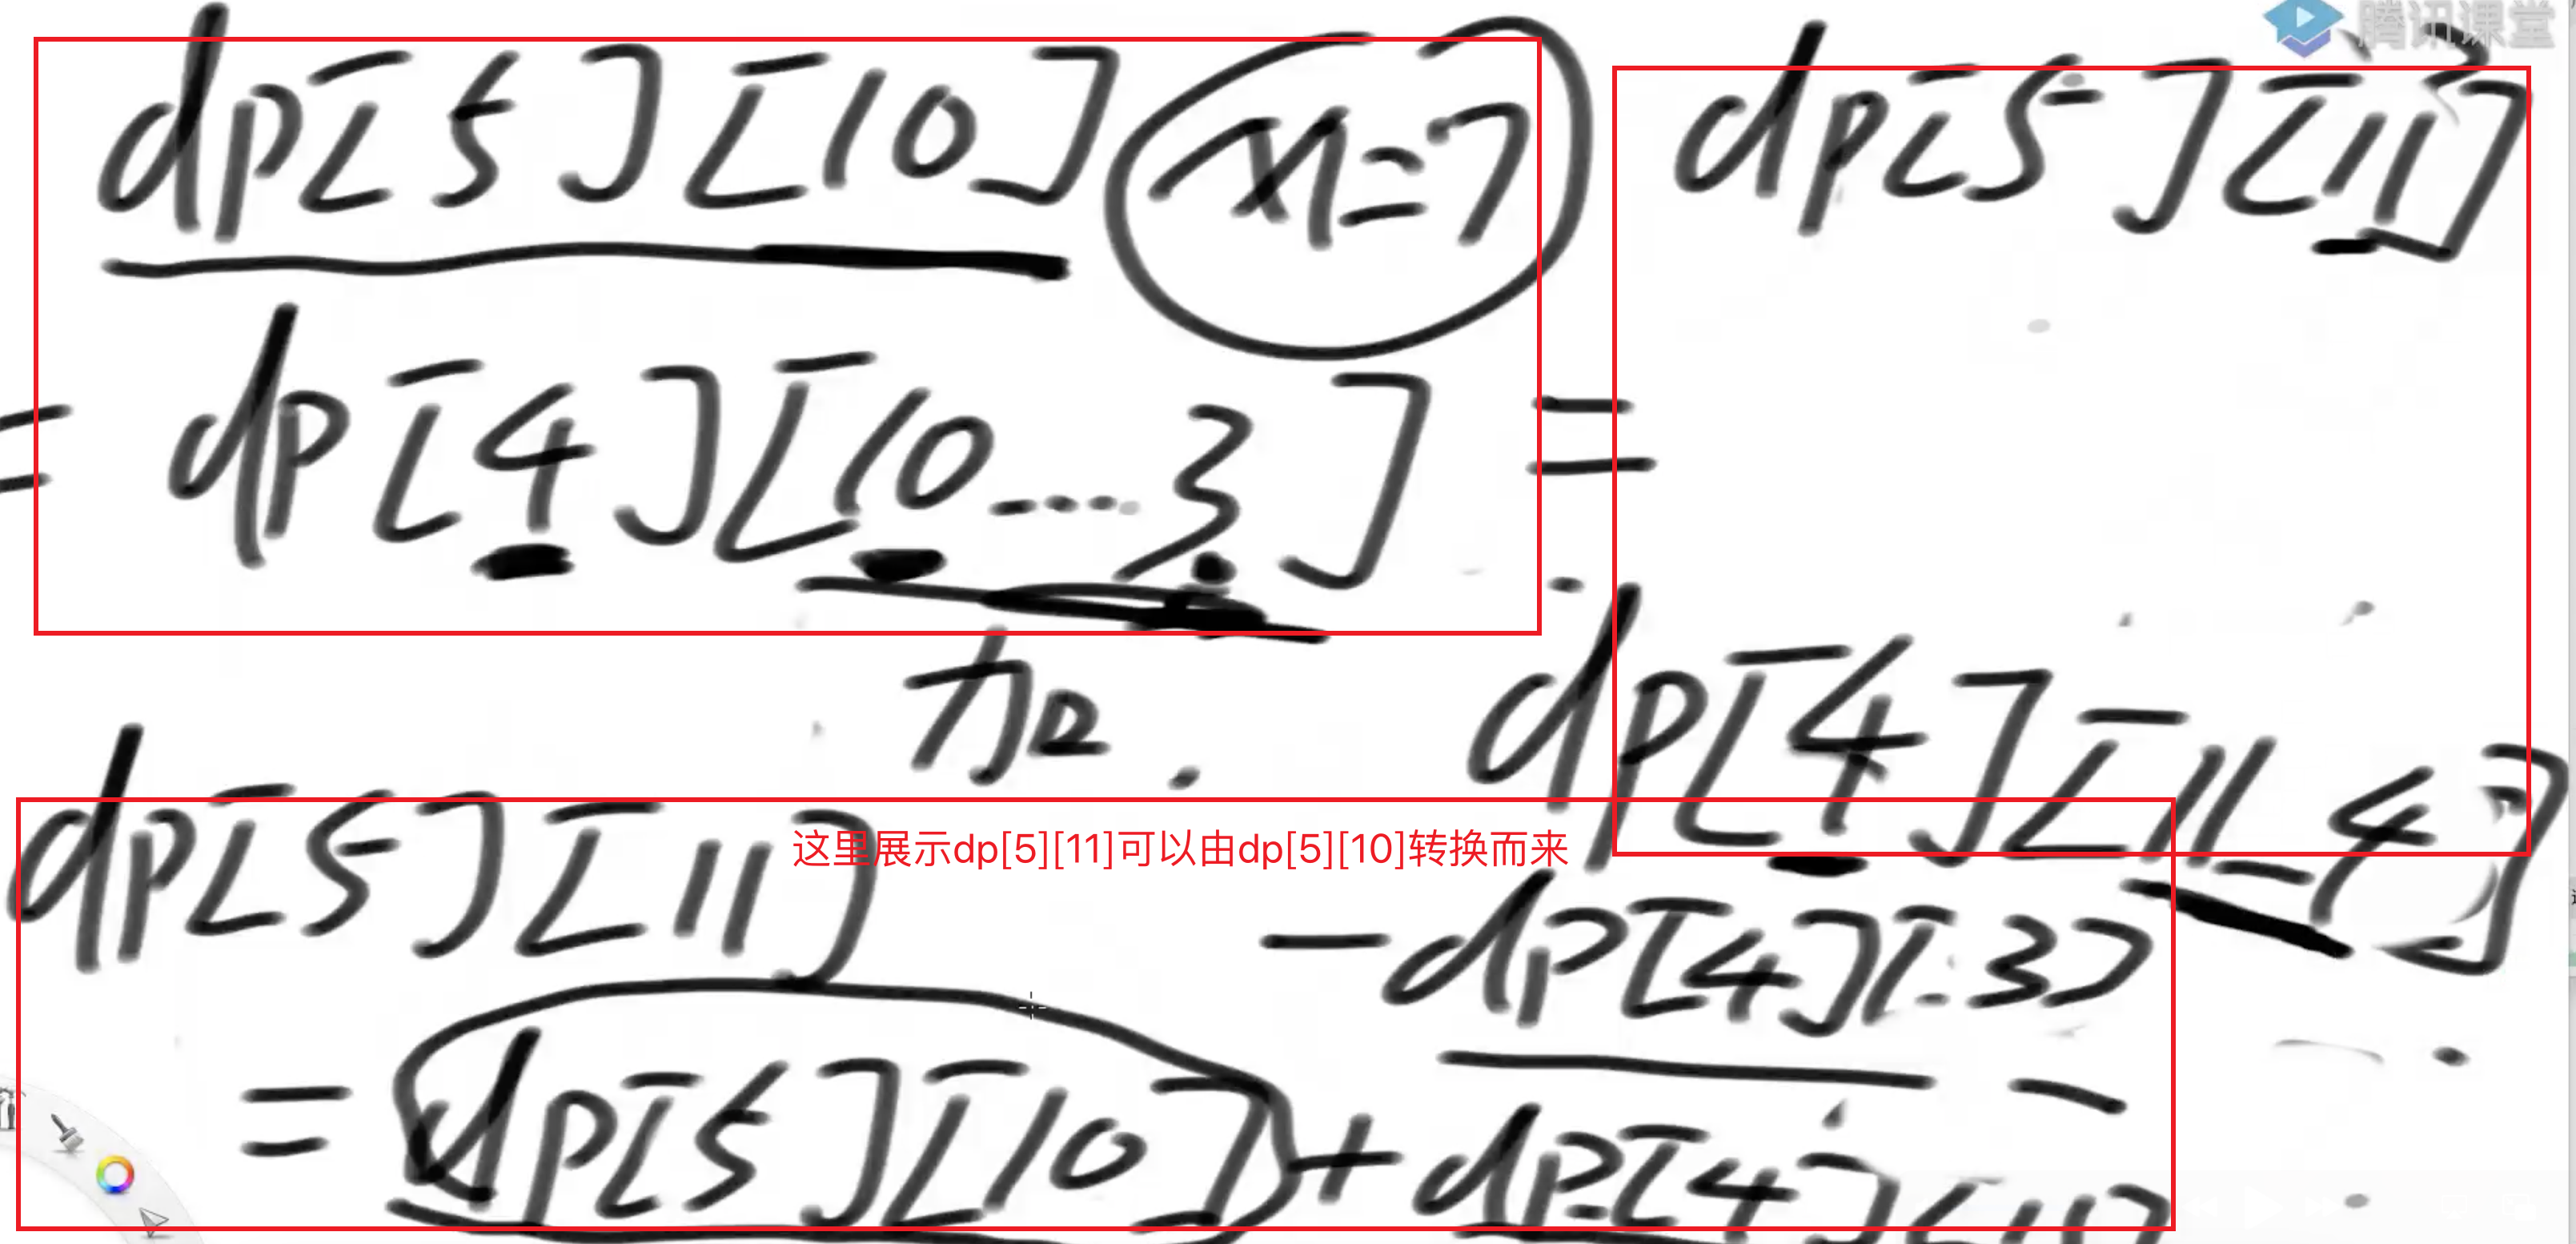 腾讯课堂
dp[5][10] x=7
= dp[4][10....3]
加
dp[5][11]
=
dp[4][11-4]
dp[5][11]
这里展示dp[5][11]可以由dp[5][10]转换而来
-dp[4][3]
= dp[5][10] + dp[4][11]